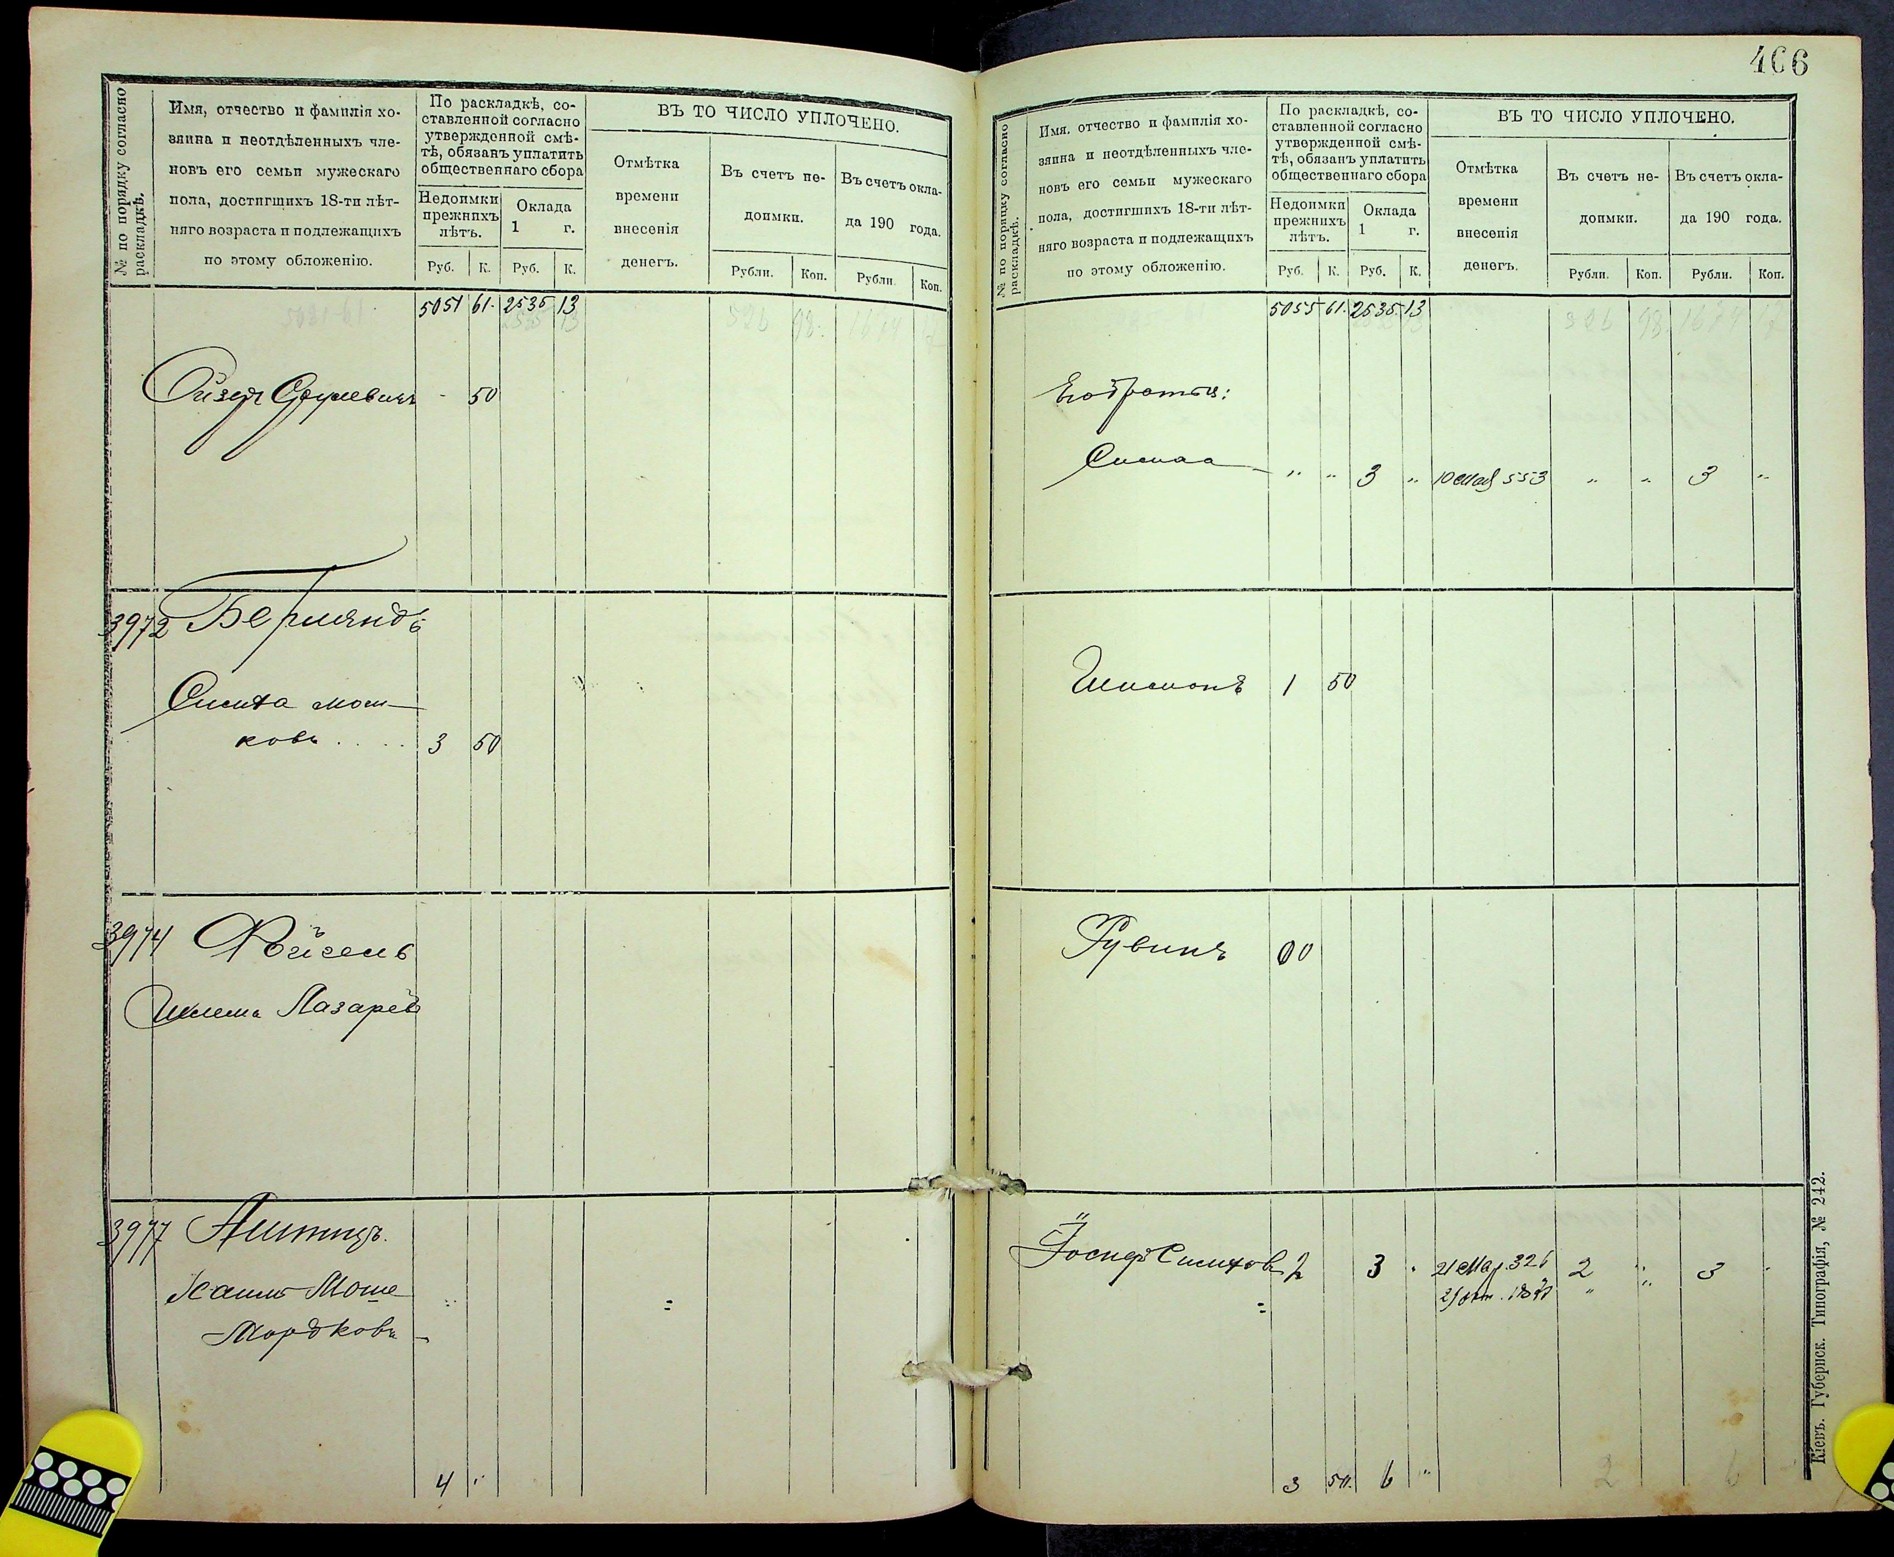 406
№ по порядку согласно раскладкѣ.
Имя, отчество и фамилія хо-
зяина и неотдѣленныхъ чле-
новъ его семьи мужескаго
пола, достигшихъ 18-ти лѣт-
няго возраста и подлежащихъ
по этому обложенію.
По раскладкѣ, со-
ставленной согласно
утвержденной смѣ-
тѣ, обязанъ уплатить
общественнаго сбора
Недоимки
прежнихъ
лѣтъ.
Оклада
1 г.
Руб. К. Руб. К.
ВЪ ТО ЧИСЛО УПЛОЧЕНО.
Отмѣтка
времени
внесенія
денегъ.
Въ счетъ не-
доимки.
Въ счетъ окла-
да 190 года.
Рубли. Коп. Рубли. Коп.
5051 61 2535 13
50
3972 Берляндъ
Симха Мош-
ковъ . . . . 3 50
3974
Шлема Лазаревъ
3977
Мошко
Мордковъ
4 "
№ по порядку согласно раскладкѣ.
Имя, отчество и фамилія хо-
зяина и неотдѣленныхъ чле-
новъ его семьи мужескаго
пола, достигшихъ 18-ти лѣт-
няго возраста и подлежащихъ
по этому обложенію.
По раскладкѣ, со-
ставленной согласно
утвержденной смѣ-
тѣ, обязанъ уплатить
общественнаго сбора
Недоимки
прежнихъ
лѣтъ.
Оклада
1 г.
Руб. К. Руб. К.
ВЪ ТО ЧИСЛО УПЛОЧЕНО.
Отмѣтка
времени
внесенія
денегъ.
Въ счетъ не-
доимки.
Въ счетъ окла-
да 190 года.
Рубли. Коп. Рубли. Коп.
5055 61 2535 13
Его братья:
Симха " " 3 " 10 Мая 553 " " 3 "
Шимонъ 1 50
Рувинъ
Іосифъ Симховъ 2 3 " 21 Мая 326 2 " 3
3 50 6 "
Кіевъ. Губернск. Типографія, № 242.